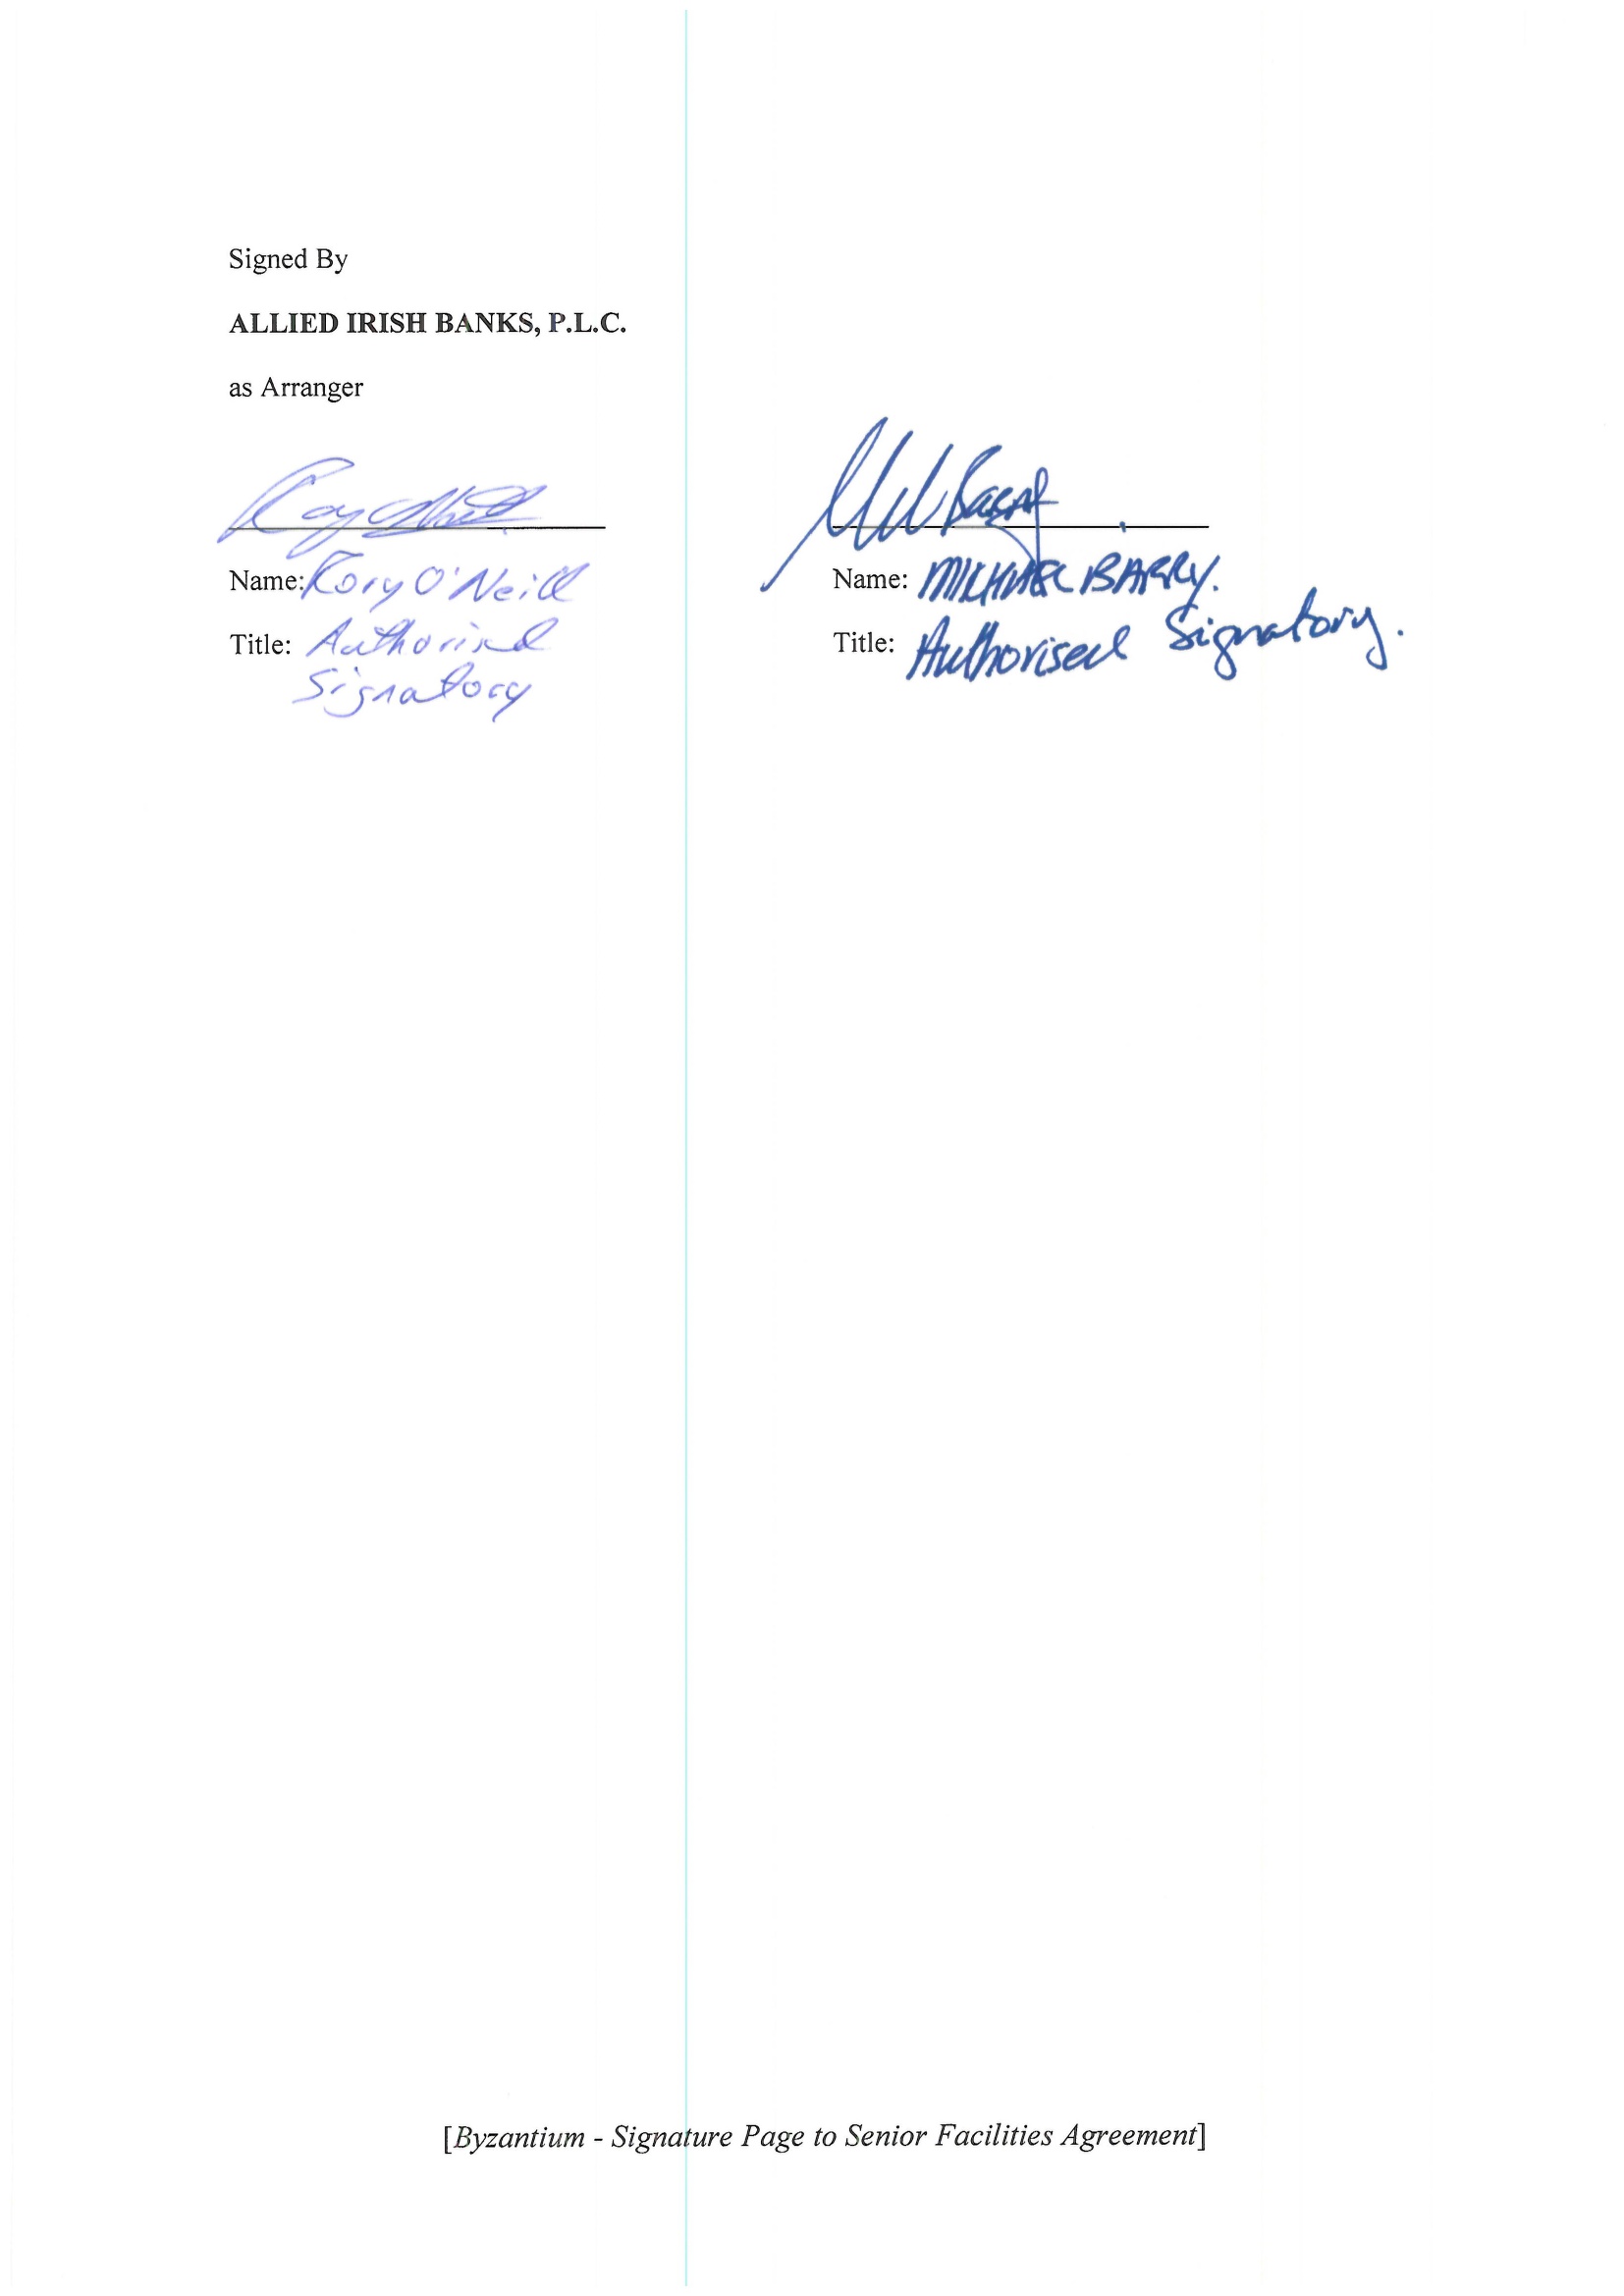 Signed By
ALLIED IRISH BANKS, P.L.C.
as Arranger
Name: Rory O'Neill
Title: Authorised
Signatory
Name: MICHAEL BARRY.
Title: Authorised Signatory.
[Byzantium - Signature Page to Senior Facilities Agreement]